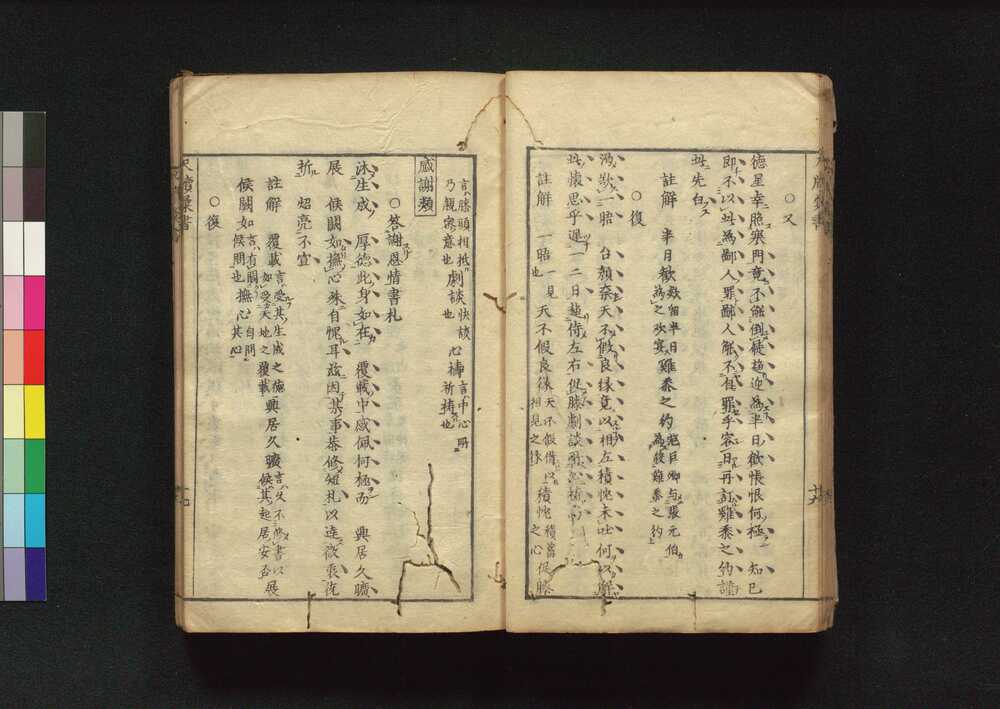 ○又
德星幸照寒門竟不能倒屣趍迎為半日歓悵恨何極 知已
即不以此為鄙人罪鄙人能不自罪乎容日再訂雞黍之約謹
此先白
註解 半日歓 欵留半日為之欢宴 雞黍之約 范巨卿与張元伯為後雞黍之約
○復
渴欲一晤 台顔奈天不假良縁竟以相左積忱未吐何以
此懐思乎遲一二日趍侍左右促膝劇談
註解 一晤 一見也 天不假良縁 天不假借以相見之縁 積忱 積蓄忱之心 促膝
言膝頭相抵乃親密意也 劇談 快談也 心祷 言中心所祈祷也
感謝類
○答謝恩情書札
沐生成 厚德此身如在 覆載中感佩何極而 興居久曠
展 候闗如撫心殊自愧耳茲因某事恭修短札以達微衷伏
祈 炤亮不宣
註解 覆載 言受其生成之德如受天地之覆載 興居久曠 言久不修書以展候其起居安否
候闗如 言有闗候問也 撫心 自問其心
○復
尺牘
十九